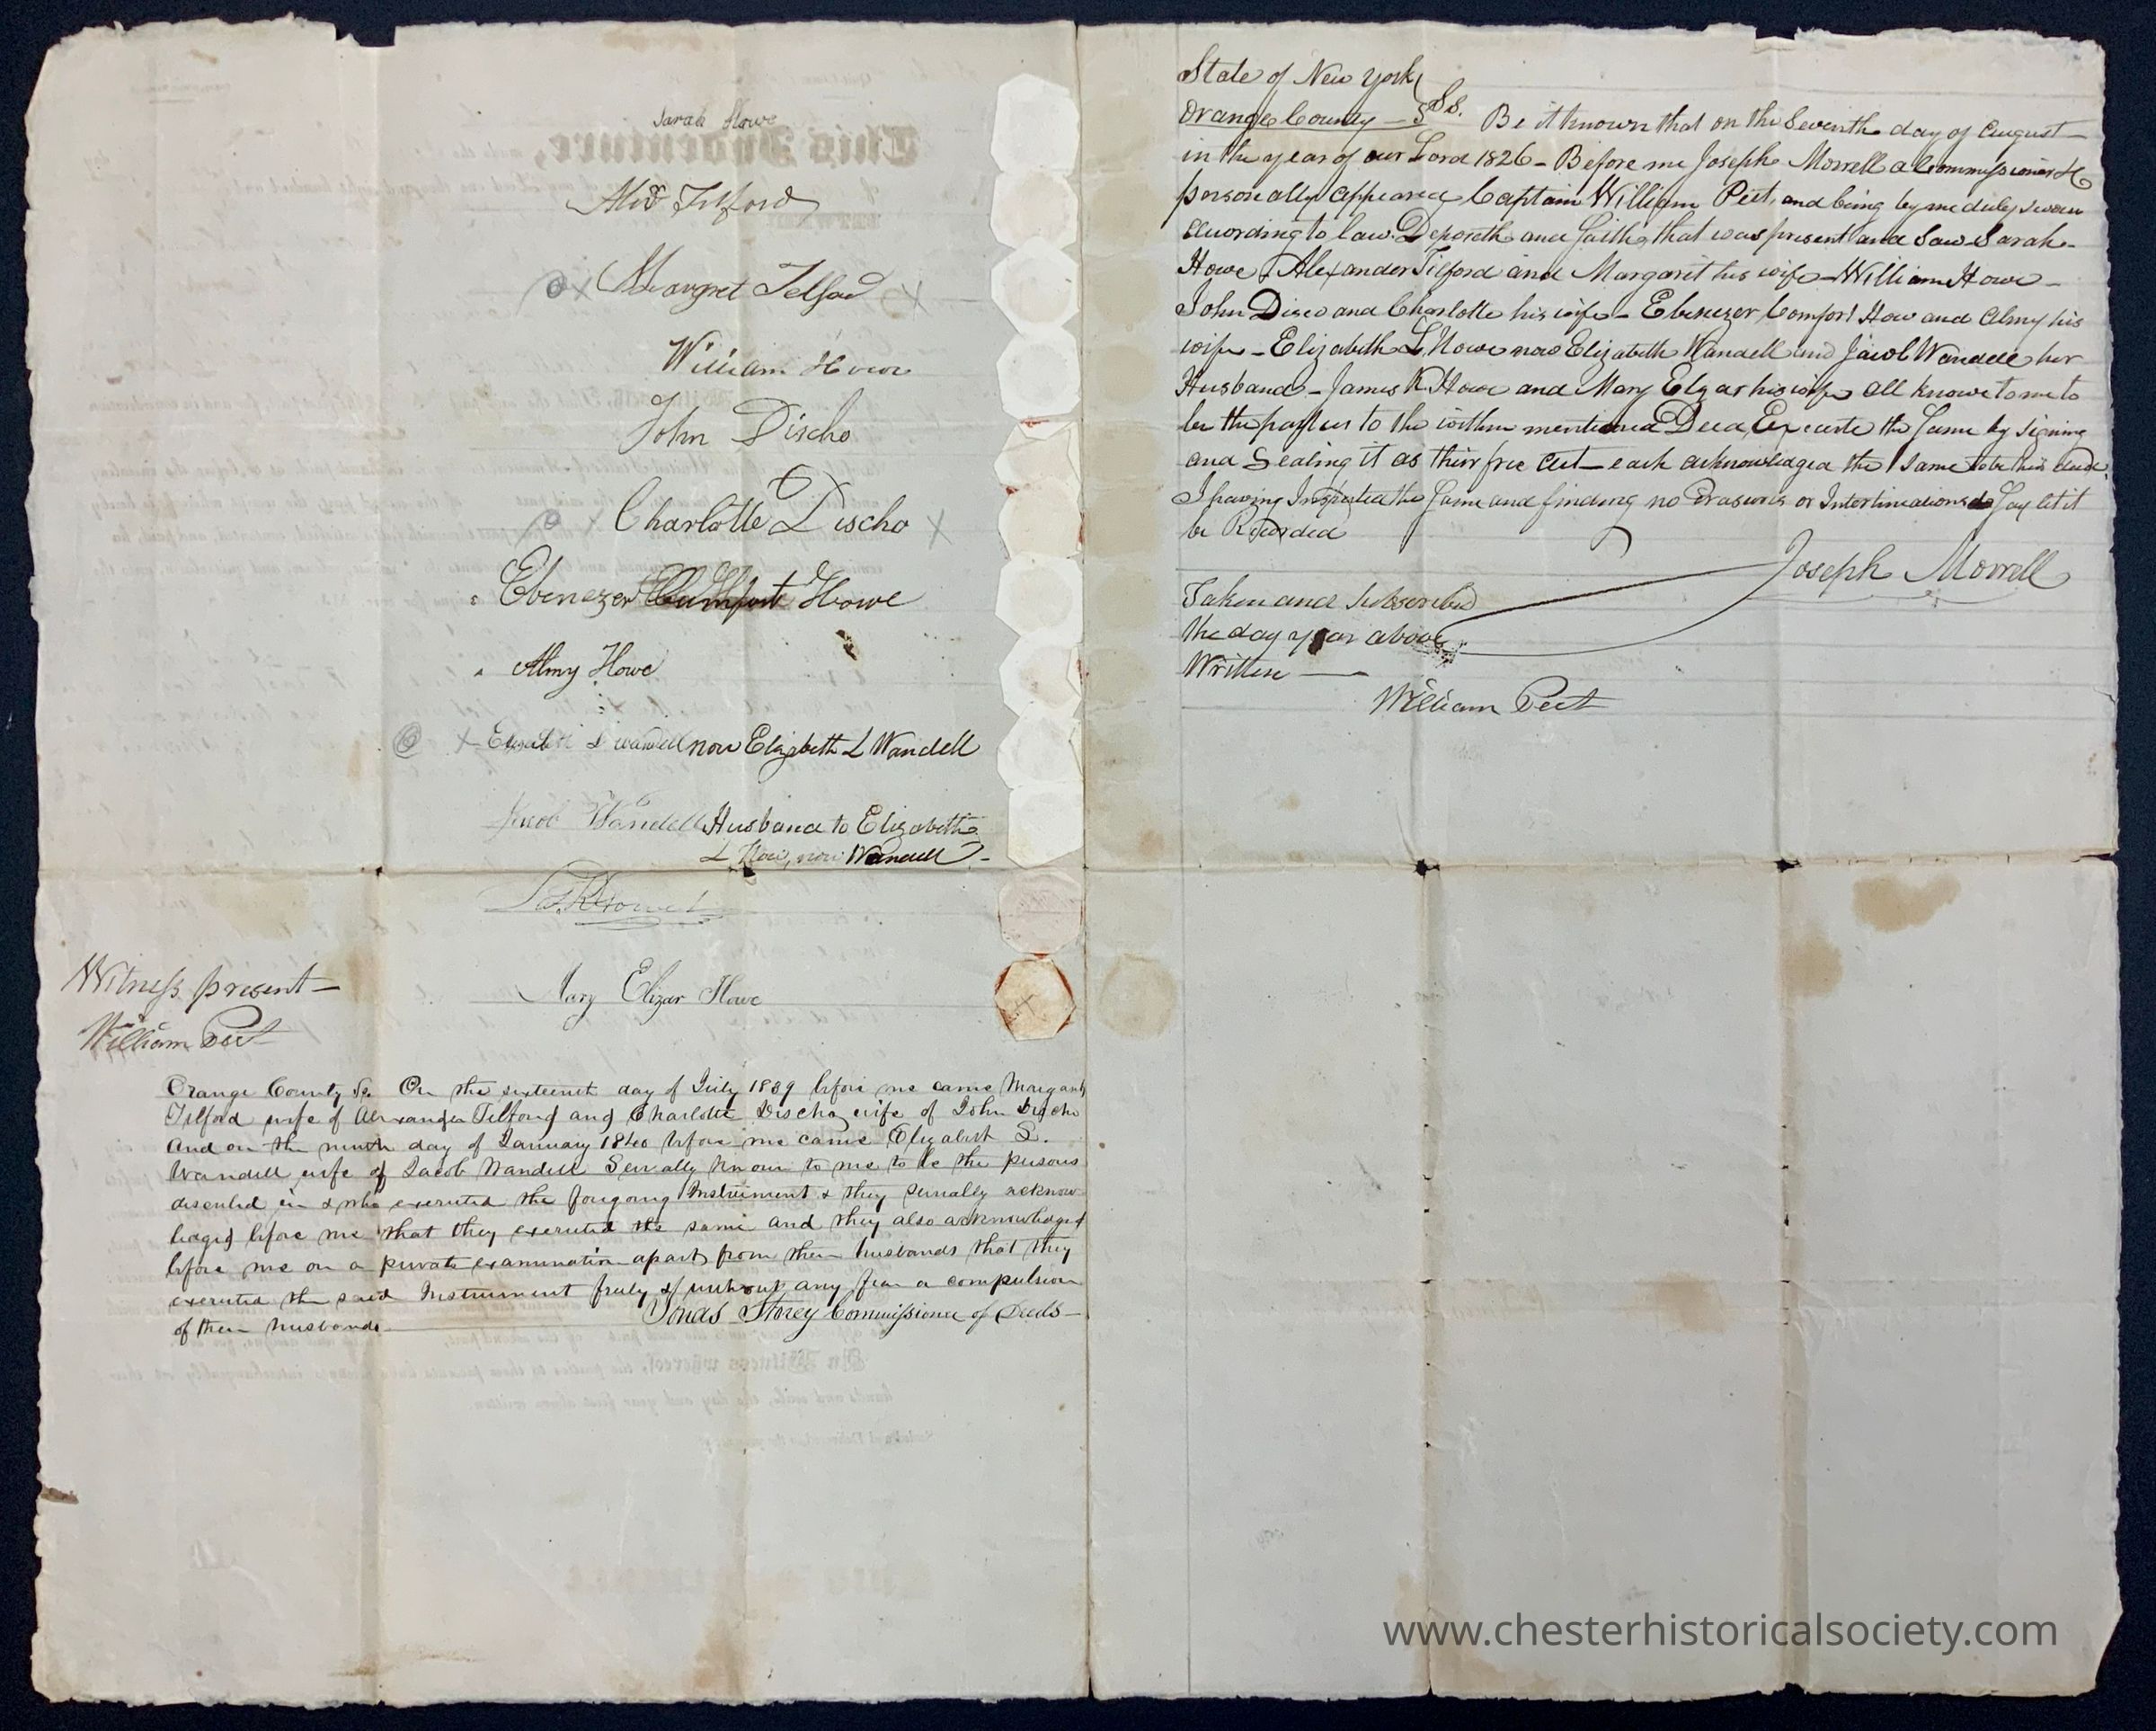 Sarah Howe
Alexr Telford
Margret Telford
William Howe
John Discho
Charlotte Discho
Ebenezer Cumfort Howe
Almy Howe
Elizabeth L Wandell now Elizabeth L Wandell
Jacob Wandell Husband to Elizabeth
L How, now Wandell
Jas. K Howe
Mary Elizar Howe
Witness present
William Peet
Orange County Ss. On the sixteenth day of July 1839 before me came Margaret
Telford wife of Alexander Telford and Charlotte Discho wife of John Discho
And on the ninth day of January 1840 before me came Elizabeth L.
Wandell wife of Jacob Wandell Severally known to me to be the persons
described in & who executed the foregoing Instrument & they severally acknow
ledged before me that they executed the same and they also acknowledged
before me on a private examination apart from their husbands that they
executed the said Instrument freely & without any fear or compulsion
of their husbands
Jonas Storey Commissioner of Deeds
State of New York
Orange County – Ss. Be it known that on the Seventh day of August
in the year of our Lord 1826 – Before me Joseph Morrell a Commissioner &c
personally appeared Captain William Peet, and being by me duly sworn
according to law. Deposeth and saith, that was present and Saw Sarah
Howe, Alexander Tilford and Margaret his wife – William Howe –
John Disco and Charlotte his wife – Ebenezer Comfort How and Almy his
wife – Elizabeth L. Howe now Elizabeth Wandell and Jacob Wandell her
Husband – James K. Howe and Mary Elzar his wife all knowe to me to
be the parties to the within mentioned Deed, Execute the Same by signing
and Sealing it as their free act – each acknowledged the same to be their deed
I having Inspected the Same and finding no Erasures or Interlineations do Say let it
be Recorded
Joseph Morrell
Taken and Subscribed
the day year above
Written
William Peet
www.chesterhistoricalsociety.com